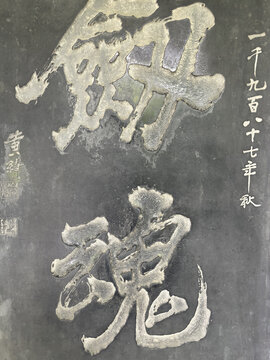 一千九百八十七年秋
劔魂